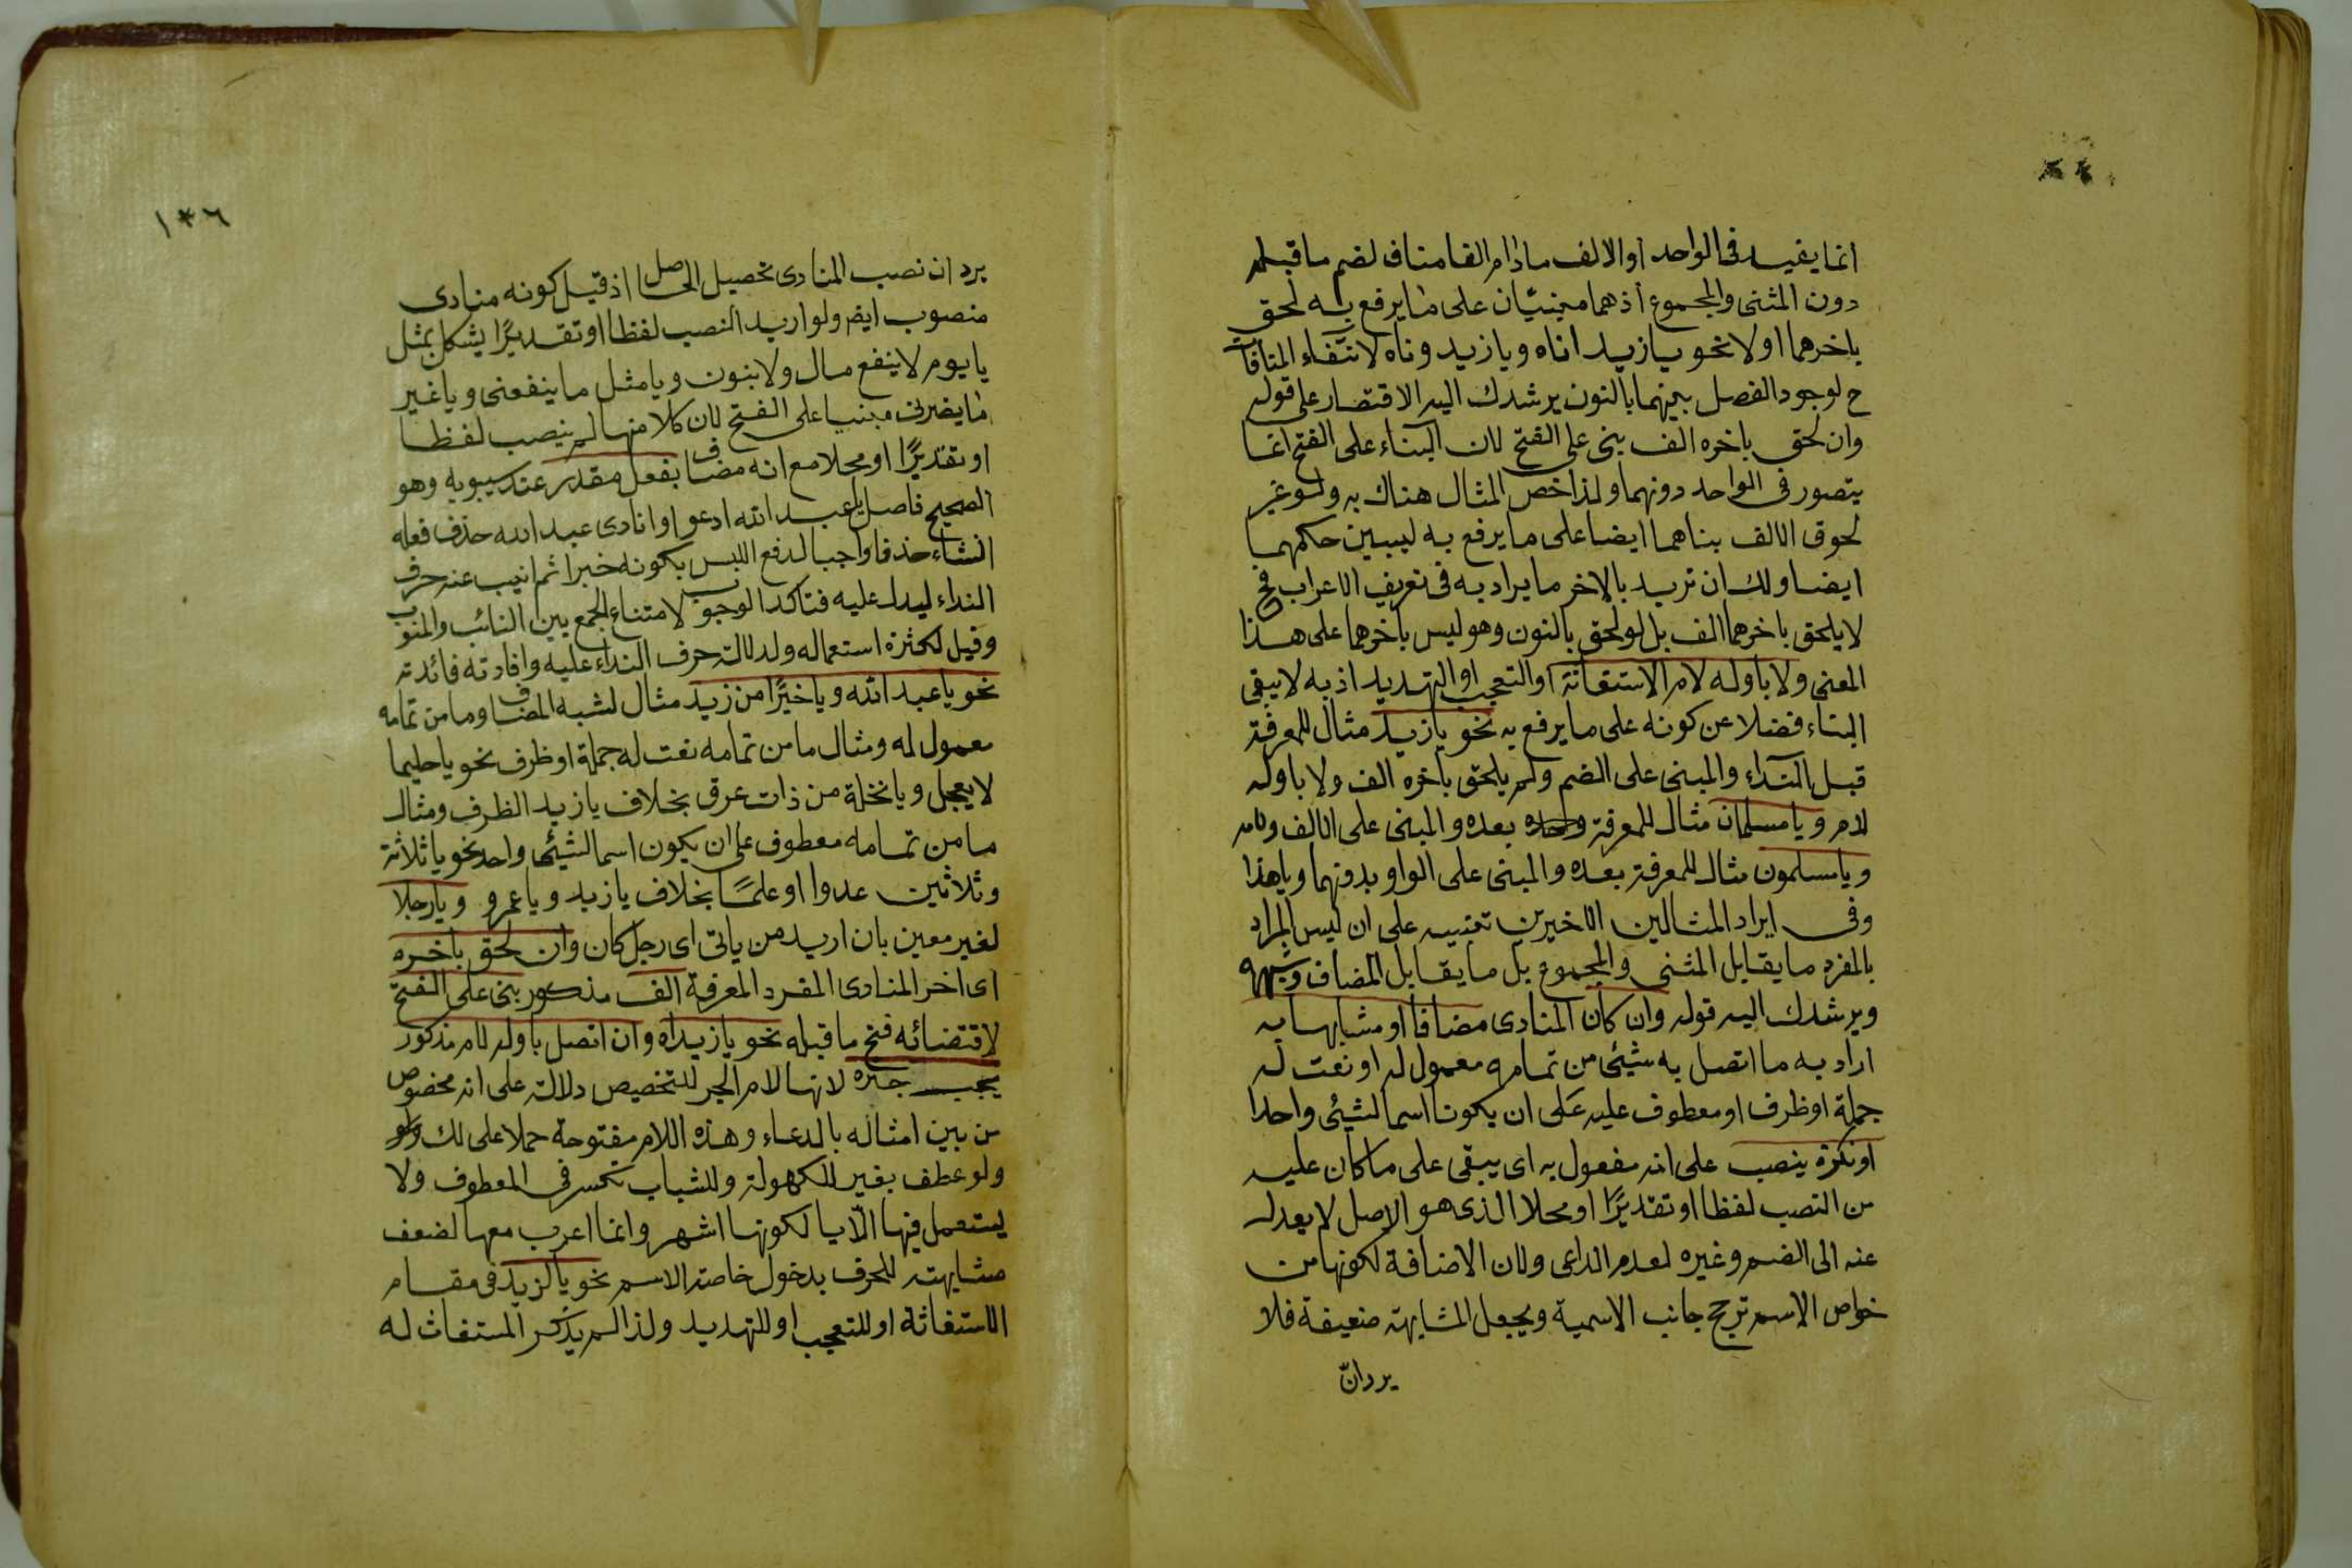 انما يفيد فى الواحد اوالالف مادام الفا مناف لضم ما قبله
دون المثنى والمجموع اذهما مبنيّان على ما يرفع به لحق
باخرهما اولا نحو يازيد اناه ويازيد وناه لانتفاء المنافا
ح لوجود الفصل بينهما بالنون يرشدك اليه الاقتصار على قوله
وان لحق باخره الف بنى على الفتح لان البناء على الفتح انما
يتصور فى الواحد دونهما ولذا خص المثال هناك به ولو غير
لحوق الالف بناهما ايضا على ما يرفع به ليبين حكمهما
ايضا ولك ان تريد بالاخر ما يراد به فى تعريف الاعراب فح
لا يلحق باخرهما الف بل لو لحق بالنون وهو ليس باخرهما على هذا
المعنى ولا باوله لام الاستغاثة او التعجب او التهديد اذ به لا يبقى
البناء فضلا عن كونه على ما يرفع به نحو يازيد مثال للمعرفة
قبل النداء والمبنى على الضم ولم يلحق باخره الف ولا باوله
لام ويا مسلمان مثال للمعرفة بعده والمبنى على الالف ولامه
ويا مسلمون مثال للمعرفة بعده والمبنى على الواو بدونهما وياهذا
وفى ايراد المثالين الاخيرين تنبيه على ان ليس المراد
بالمفرد ما يقابل المثنى والمجموع بل ما يقابل المضاف وشبهه
ويرشدك اليه قوله وان كان المنادى مضافا او مشابها به
اراد به ما اتصل به شيئى من تمامه معمول له او نعت له
جملة او ظرف او معطوف عليه على ان يكونا اسما لشيئى واحدا
او نكرة ينصب على انه مفعول به اى يبقى على ما كان عليه
من النصب لفظا او تقديرًا او محلا الذى هو الاصل لا يعدله
عنه الى الضم وغيره لعدم الداعى ولان الاضافة لكونها من
خواص الاسم ترجح جانب الاسمية ويجعل المشابهة ضعيفة فلا
يردانّ
١٣٦
يرد ان نصب المنادى تحصيل الحاصل اذ قبل كونه منادى
منصوب ايضا ولو اريد النصب لفظا او تقديرًا يشكل بمثل
يا يوم لا ينفع مال ولا بنون ويا مثل ما ينفعنى ويا غير
ما يضرنى مبنيا على الفتح لان كلا منها لم ينصب لفظا
او تقديرًا او محلا مع انه مضاف بفعل مقدر عند سيبويه وهو
الصحيح فاصل يا عبد الله ادعو او انادى عبد الله حذف فعله
انشاء حذفا واجبا لدفع اللبس بكونه خبرا ثم انيب عنه حرف
النداء ليدل عليه فتاكد الوجوب لامتناع الجمع بين النائب والمنوب
وقيل لكثرة استعماله ولدلالة حرف النداء عليه وافادته فائدته
نحو يا عبد الله ويا خيرًا من زيد مثال لشبه المضاف وما من تمامه
معمول له ومثال ما من تمامه نعت له جملة او ظرف نحو يا حليما
لا يعجل ويا نخلة من ذات عرق بخلاف يا زيد الظرف ومثال
ما من تمامه معطوف على ان يكون اسما لشيئى واحد نحو يا ثلاثة
وثلاثين عدوا او علمًا بخلاف يا زيد ويا عمرو ويا رجلا
لغير معين بان اريد من ياتى اى رجل كان وان لحق باخره
اى اخر المنادى المفرد المعرفة الف مذكور بنى على الفتح
لاقتضائه فتح ما قبله نحو يا زيداه وان اتصل باوله لام مذكور
يجب جره لانها لام الجر للتخصيص دلالة على انه مخصوص
من بين امثاله بالدعاء وهذه اللام مفتوحة حملا على لك
ولو عطف بغير للكهولة وللشباب تكسر فى المعطوف ولا
يستعمل فيها الّا يا لكونها اشهر وانما اعرب معها لضعف
مشابهته للحرف بدخول خاصة الاسم نحو يا لزيد فى مقام
الاستغاثة او للتعجب او للتهديد ولذا لم يذكر المستغاث له